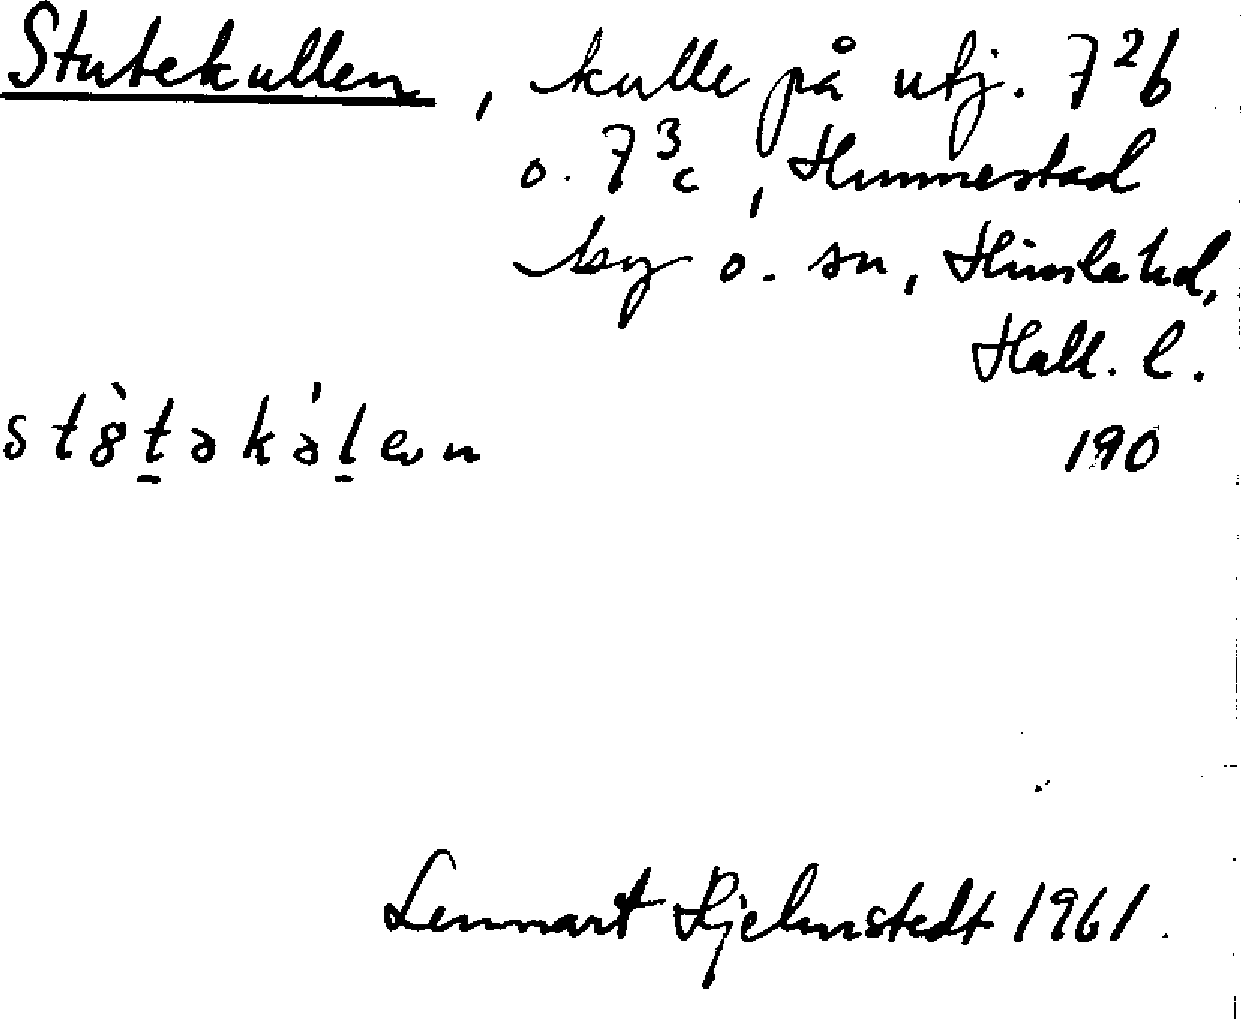 Stutekullen, kulle på utj. 7²b
o. 7³c, Hunnestad
by o. sn, Himle hd,
Hall. l.
st8̀t̠əkə̍l̠en 190
Lennart Hjelmstedt 1961.